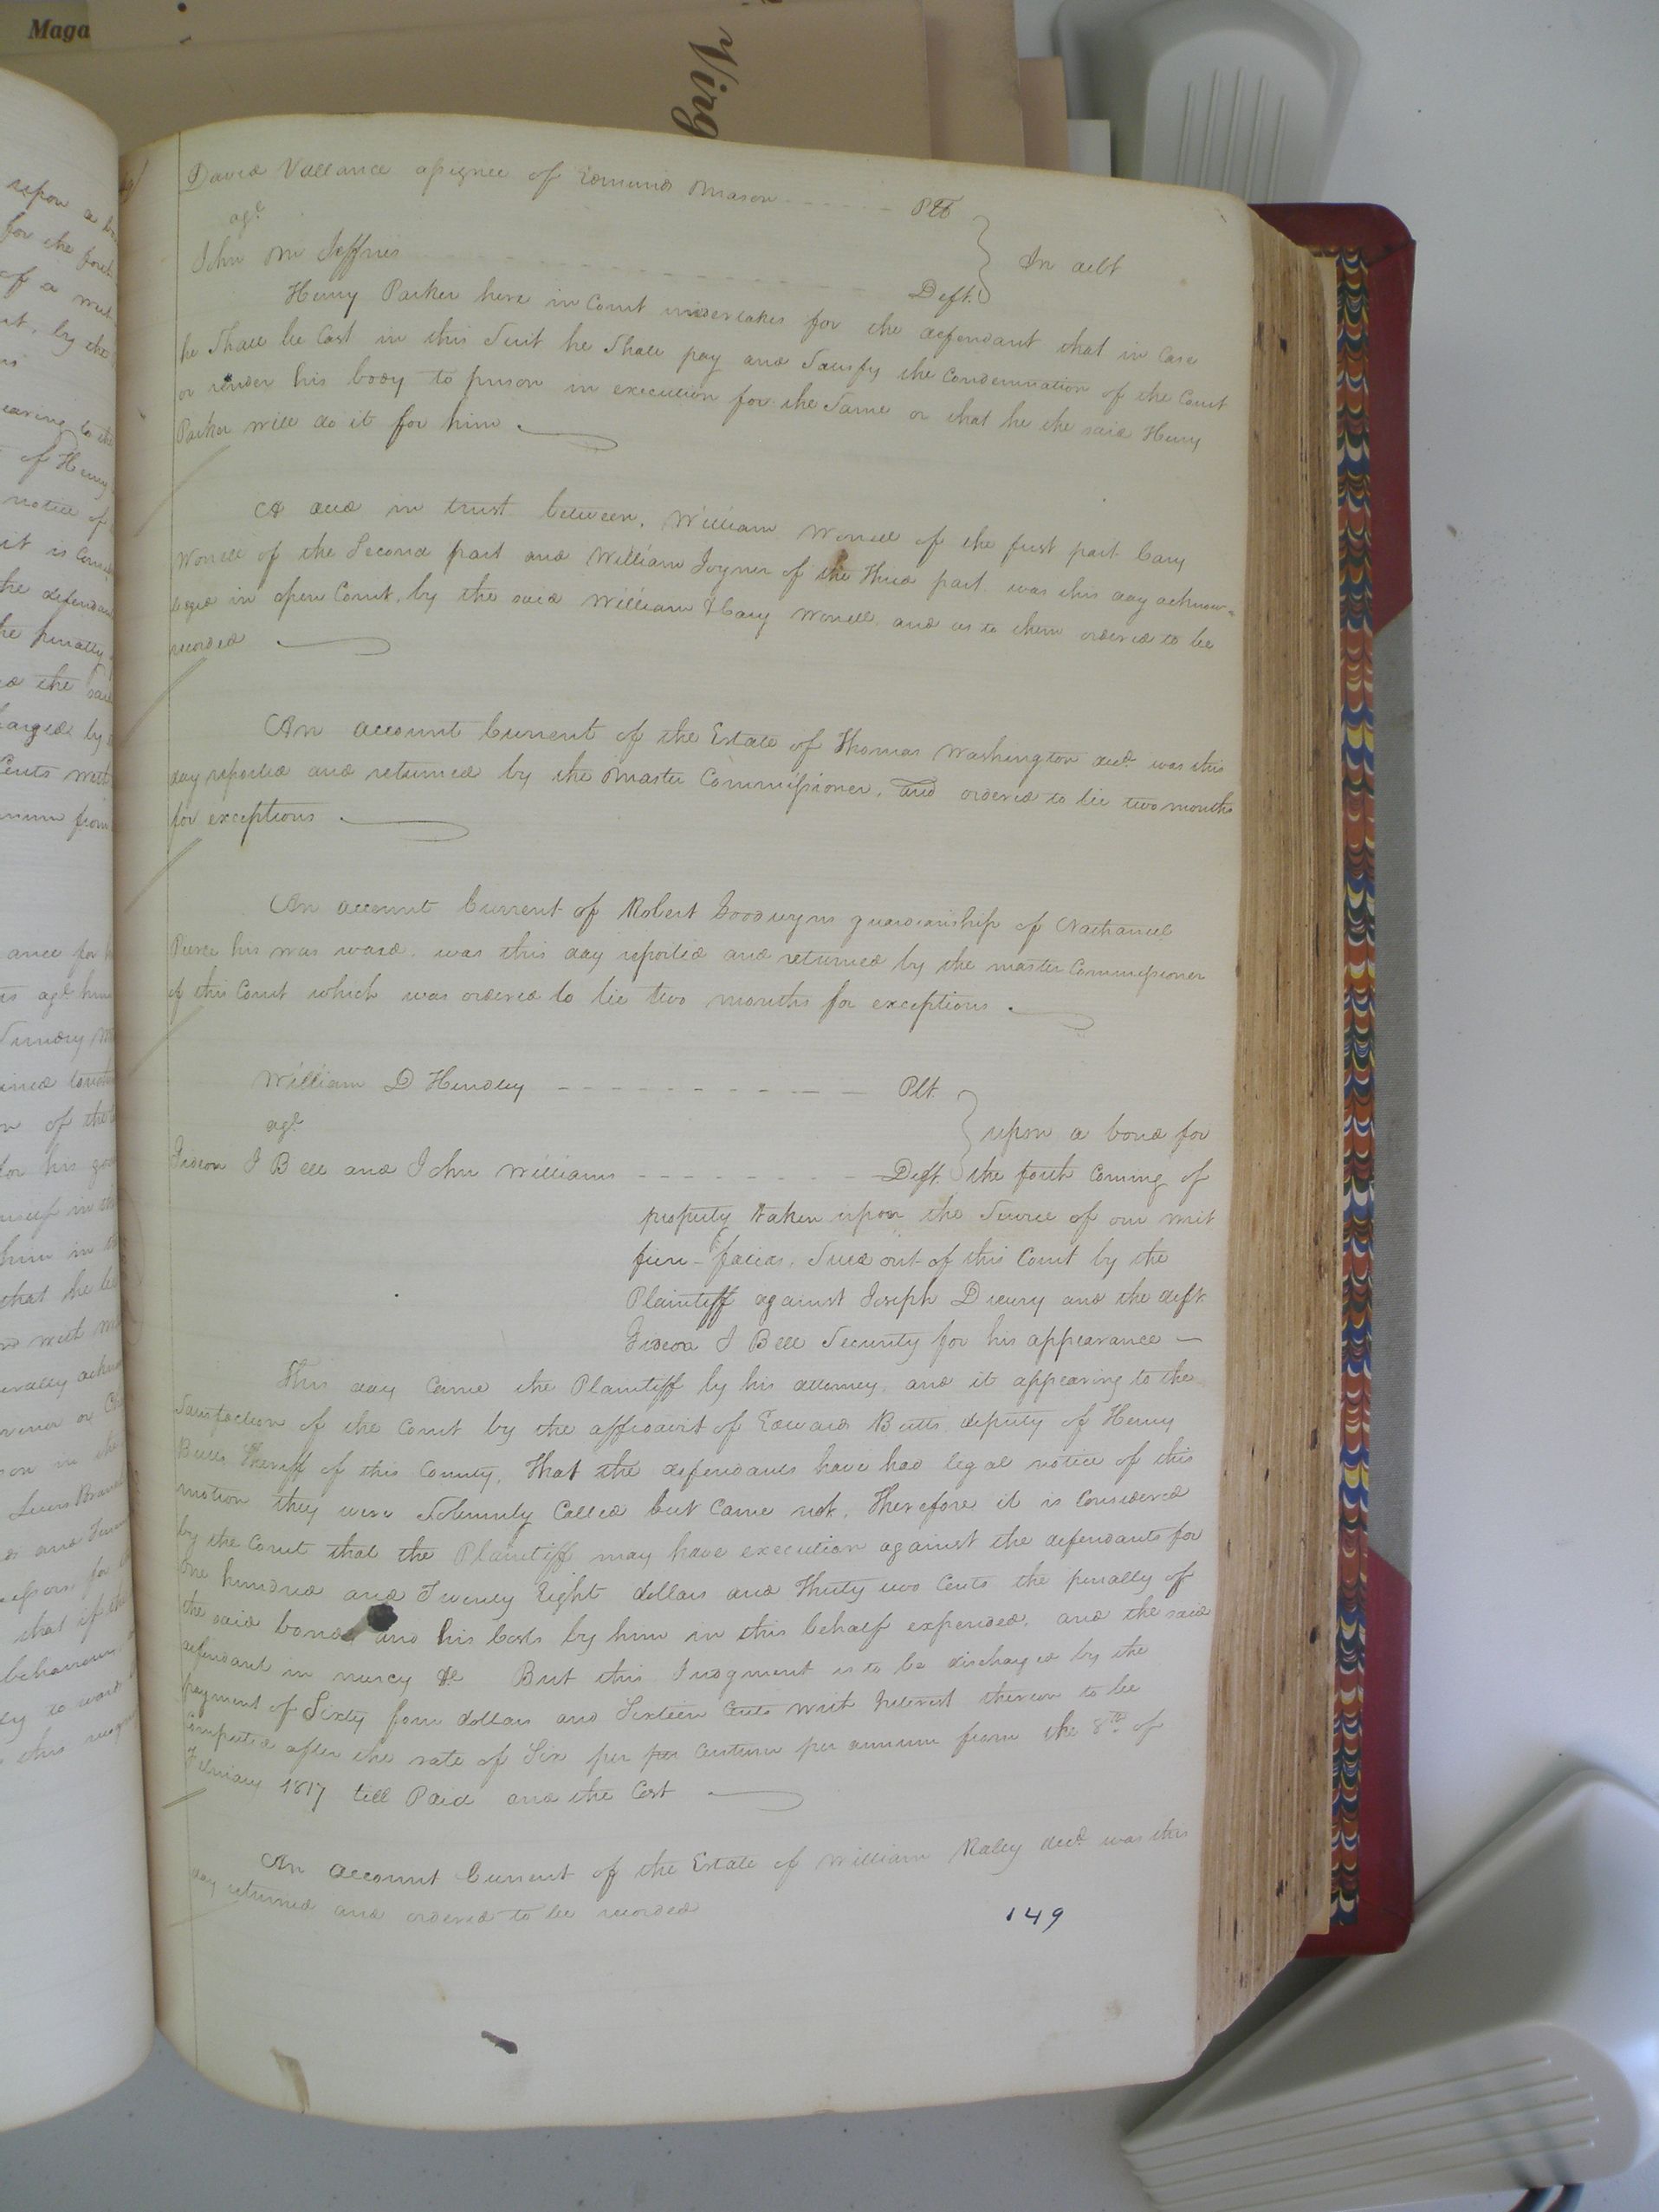 Maga
Virg
David Vallance assignee of Edmund Mason Plt
agt
John M Jeffries Deft. In debt
Henry Parker here in Court undertakes for the defendant that in Case
he Shall be Cast in this Suit he Shall pay and Satisfy the Condemnation of the Court
or render his body to prison in execution for the Same or that he the said Henry
Parker will do it for him
A deed in trust between, William Worrell of the first part Cary
Worrell of the Second part and William Joyner of the Third part. was this day acknow=
leged in open Court, by the said William & Cary Worrell and as to them ordered to be
recorded
An account Current of the Estate of Thomas Washington decd. was this
day reported and returned by the Master Commissioner, and ordered to lie two months
for exceptions
An account Current of Robert Goodwyns guardianship of Nathaniel
Peirce his was ward. was this day reported and returned by the master Commissioner
of this Court which was ordered to lie two months for exceptions.
William D Hendley Plt.
agt
Gideon J Bell and John Williams Deft
upon a bond for
the forth Coming of
property taken upon the Service of our writ
fieri-facias, Sued out of this Court by the
Plaintiff against Joseph Drewry and the deft.
Gideon J Bell Security for his appearance
This day Came the Plaintiff by his attorney, and it appearing to the
Satisfaction of the Court by the affidavit of Edward Butts deputy of Henry
Butts Sheriff of this County, That the defendants have had legal notice of this
motion they were Solemnly Called but Came not, Therefore it is Considered
by the Court that the Plaintiff may have execution against the defendants for
One hundred and Twenty Eight dollars and Thirty two Cents the penalty of
the said bond and his Costs by him in this behalf expended, and the said
defendant in mercy &c But this Judgment is to be discharged by the
payment of Sixty four dollars and Sixteen Cents with Interest thereon to be
Computed after the rate of Six per per Centum per annum from the 8th of
February 1817 till Paid and the Cost
An account Current of the Estate of William Raley decd. was this
day returned and ordered to be recorded
149